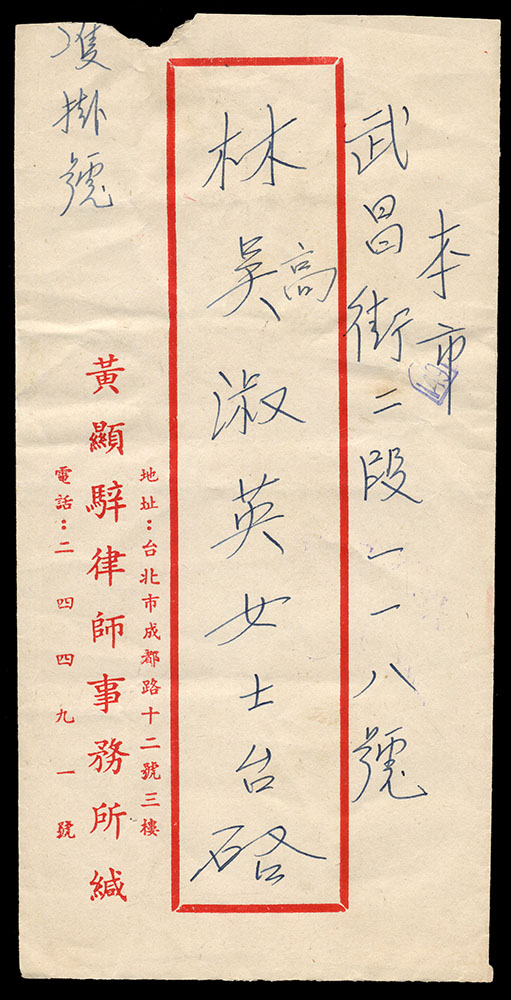 本市
武昌街二段一一八號
林吳淑英女士台啓
高
雙掛號
地址：台北市成都路十二號三樓
黃顯騂律師事務所緘
電話：二四四九一號